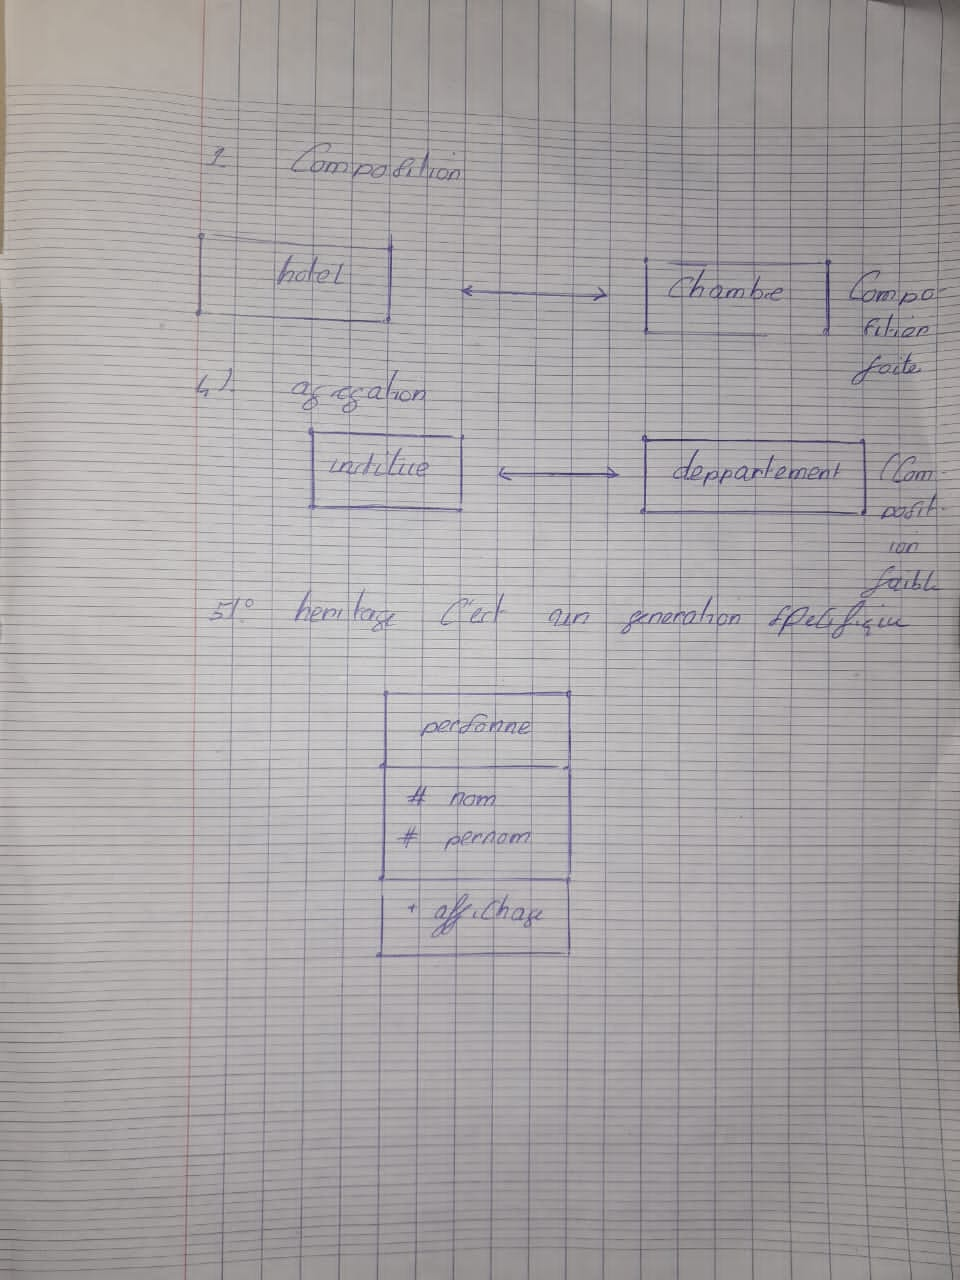 1 Composition
hotel
Chambre
Compo-
sition
foite
4). agregation
institue
deppartement
(Com-
posit-
ion
faible
5)° heritage C'est un generation spesifique
personne
# nom
# pernom
+ affichage